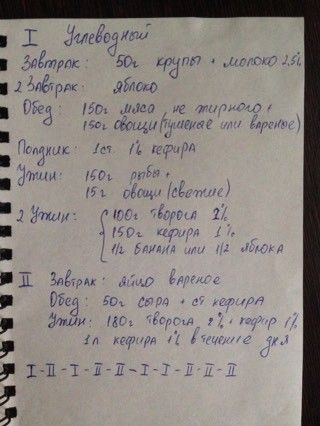 I Углеводный
Завтрак: 50г крупы + молоко 2,5%
2 Завтрак: яблоко
Обед: 150г мяса не жирного +
150г овощи (тушеные или вареные)
Полдник: 1 ст. 1% кефира
Ужин: 150г рыбы +
15г овощи (свежие)
2 Ужин: 100г творога 2%
150г кефира 1%
1/2 банана или 1/2 яблока
II Завтрак: яйцо вареное
Обед: 50г сыра + ст кефира
Ужин: 180г творога 2% + кефир 1%
1 л кефира 1% в течение дня
I - II - I - II - II - I - I - II - II - II